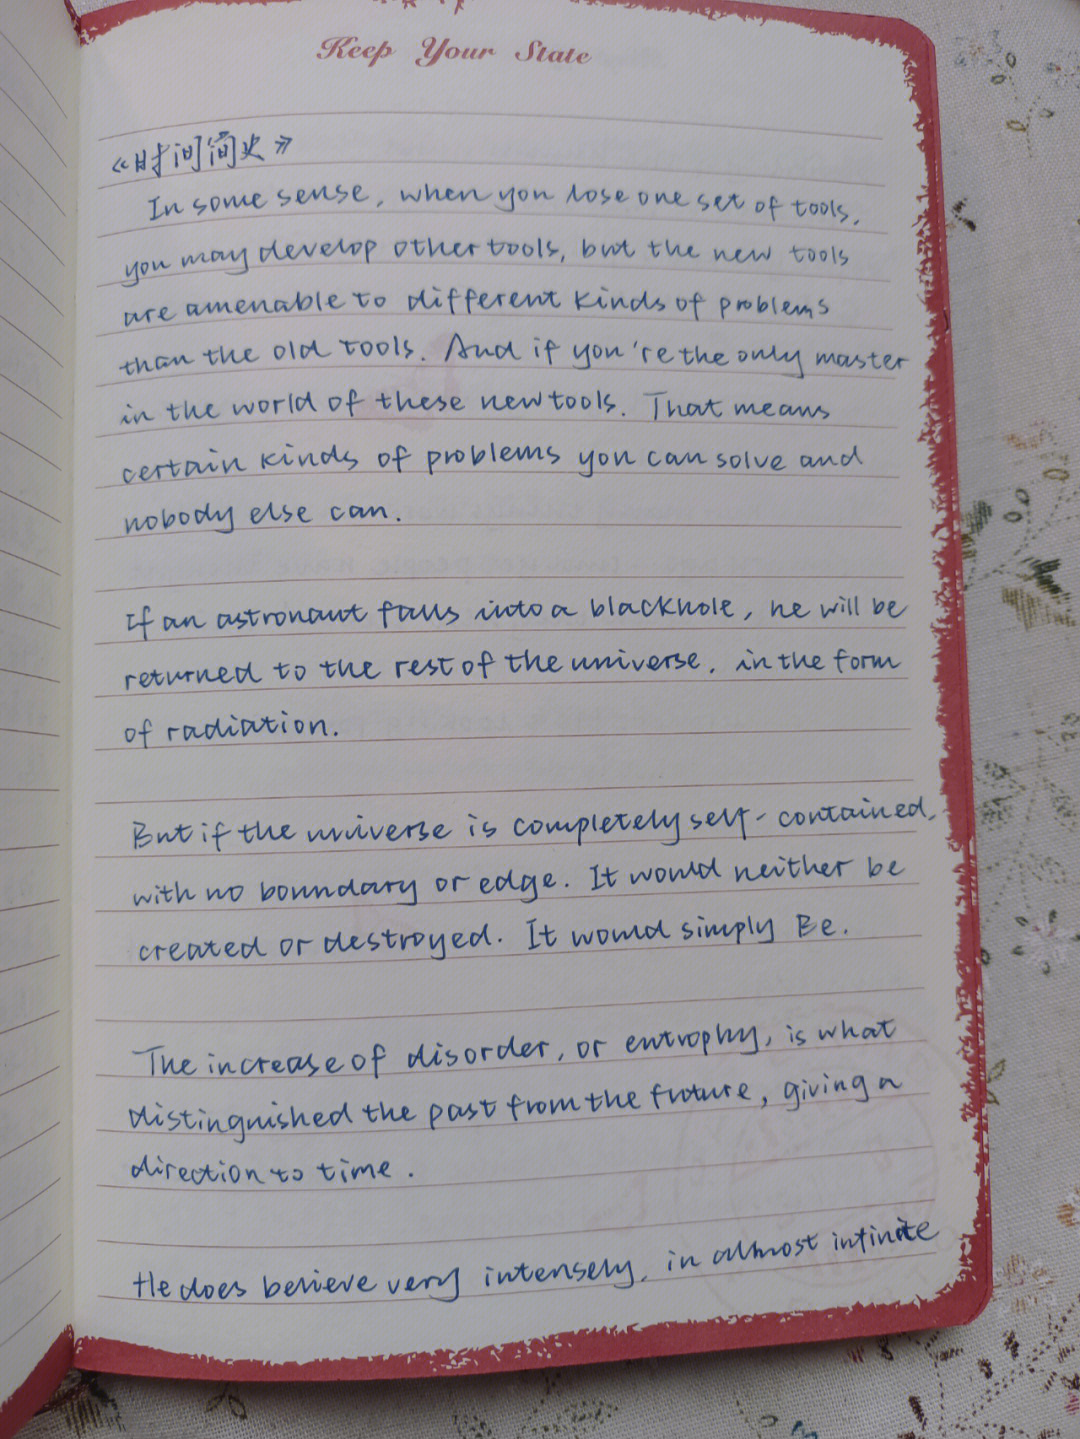 Keep Your State
《时间简史》
In some sense, when you lose one set of tools,
you may develop other tools, but the new tools
are amenable to different kinds of problems
than the old tools. And if you're the only master
in the world of these new tools. That means
certain kinds of problems you can solve and
nobody else can.
If an astronaut falls into a blackhole, he will be
returned to the rest of the universe, in the form
of radiation.
But if the universe is completely self-contained,
with no boundary or edge. It would neither be
created or destroyed. It would simply Be.
The increase of disorder, or entrophy, is what
distinguished the past from the fruture, giving a
direction to time.
He does believe very intensely, in almost infinite